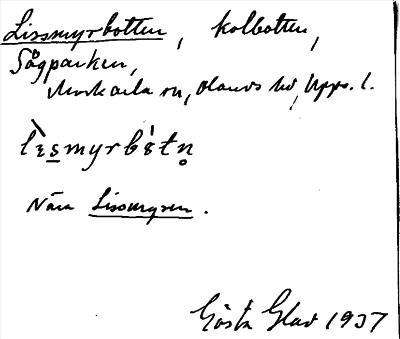 Lissmyrbotten, kolbotten,
Sågparken,
Morkarla sn, Olands hd, Upps. l.
Nära Lissmyren.
Gösta Glad 1937